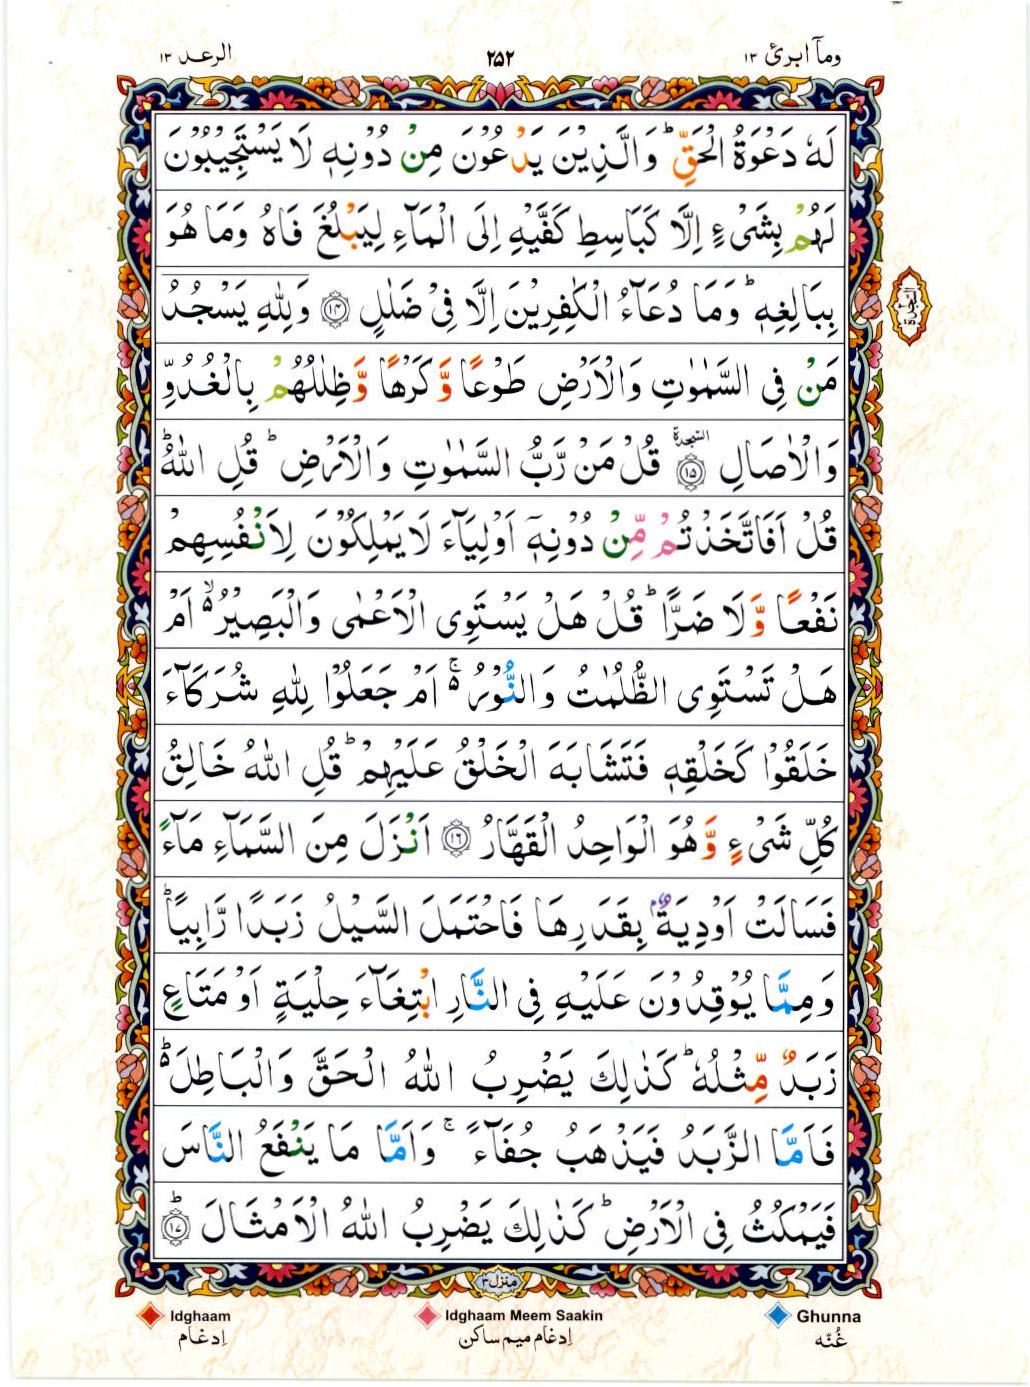 وما ابرئ ١٣
٢٥٢
الرعد ١٣
لَهٗ دَعْوَةُ الْحَقِّ ؕ وَالَّذِيْنَ يَدْعُوْنَ مِنْ دُوْنِهٖ لَا يَسْتَجِيْبُوْنَ
لَهُمْ بِشَىْءٍ اِلَّا كَبَاسِطِ كَفَّيْهِ اِلَى الْمَآءِ لِيَبْلُغَ فَاهُ وَمَا هُوَ
بِبَالِغِهٖ ؕ وَمَا دُعَآءُ الْكٰفِرِيْنَ اِلَّا فِىْ ضَلٰلٍ ﴿۱۴﴾ وَلِلّٰهِ يَسْجُدُ
السجدة
مَنْ فِى السَّمٰوٰتِ وَالْاَرْضِ طَوْعًا وَّكَرْهًا وَّظِلٰلُهُمْ بِالْغُدُوِّ
وَالْاٰصَالِ ﴿۱۵﴾ السجدة قُلْ مَنْ رَّبُّ السَّمٰوٰتِ وَالْاَرْضِ ؕ قُلِ اللّٰهُ ؕ
قُلْ اَفَاتَّخَذْتُمْ مِّنْ دُوْنِهٖۤ اَوْلِيَآءَ لَا يَمْلِكُوْنَ لِاَنْفُسِهِمْ
نَفْعًا وَّلَا ضَرًّا ؕ قُلْ هَلْ يَسْتَوِى الْاَعْمٰى وَالْبَصِيْرُ ۙ۬ اَمْ
هَلْ تَسْتَوِى الظُّلُمٰتُ وَالنُّوْرُ ۚ۬ اَمْ جَعَلُوْا لِلّٰهِ شُرَكَآءَ
خَلَقُوْا كَخَلْقِهٖ فَتَشَابَهَ الْخَلْقُ عَلَيْهِمْ ؕ قُلِ اللّٰهُ خَالِقُ
كُلِّ شَىْءٍ وَّهُوَ الْوَاحِدُ الْقَهَّارُ ﴿۱۶﴾ اَنْزَلَ مِنَ السَّمَآءِ مَآءً
فَسَالَتْ اَوْدِيَةٌۢ بِقَدَرِهَا فَاحْتَمَلَ السَّيْلُ زَبَدًا رَّابِيًا ؕ
وَمِمَّا يُوْقِدُوْنَ عَلَيْهِ فِى النَّارِ ابْتِغَآءَ حِلْيَةٍ اَوْ مَتَاعٍ
زَبَدٌ مِّثْلُهٗ ؕ كَذٰلِكَ يَضْرِبُ اللّٰهُ الْحَقَّ وَالْبَاطِلَ ؕ۬
فَاَمَّا الزَّبَدُ فَيَذْهَبُ جُفَآءً ۚ وَاَمَّا مَا يَنْفَعُ النَّاسَ
فَيَمْكُثُ فِى الْاَرْضِ ؕ كَذٰلِكَ يَضْرِبُ اللّٰهُ الْاَمْثَالَ ؕ﴿۱۷﴾
منزل ٣
Idghaam
Idghaam Meem Saakin
Ghunna
اِدغام
اِدغام میم ساکن
غُنّه